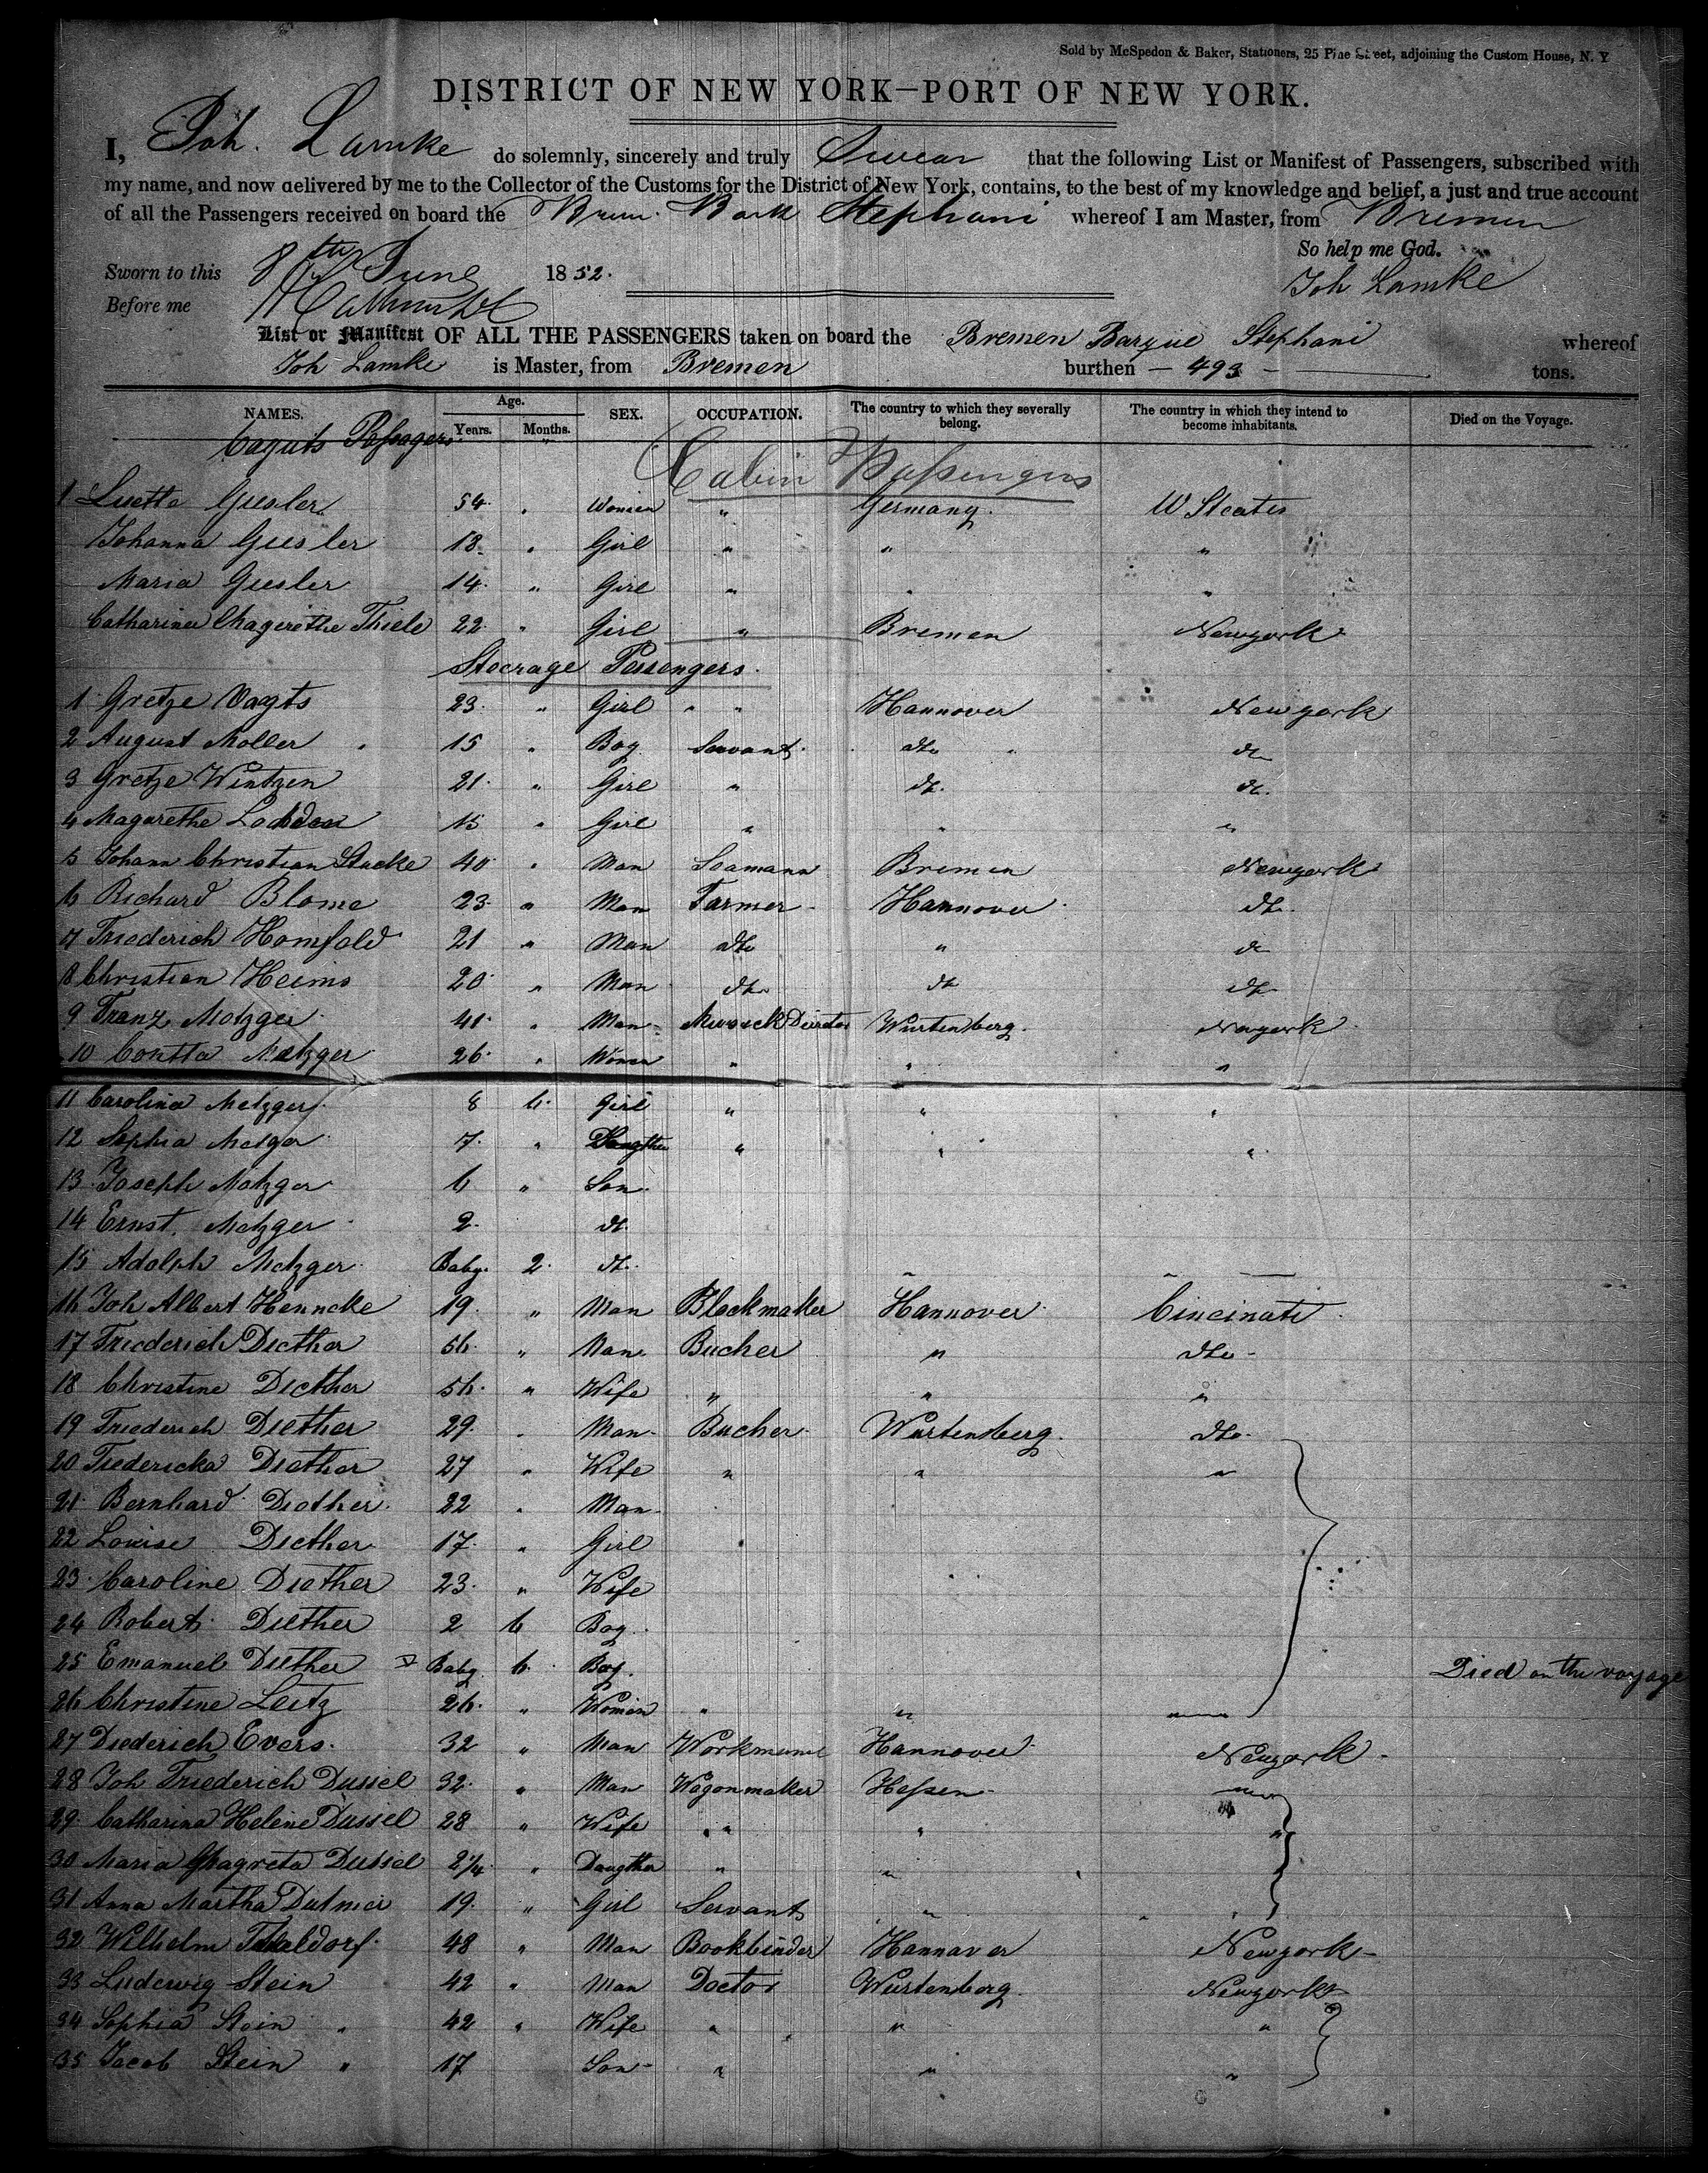 Sold by McSpedon & Baker, Stationers, 25 Pine Street, adjoining the Custom House, N. Y
DISTRICT OF NEW YORK—PORT OF NEW YORK.
I, Joh. Lamke do solemnly, sincerely and truly Swear that the following List or Manifest of Passengers, subscribed with
my name, and now delivered by me to the Collector of the Customs for the District of New York, contains, to the best of my knowledge and belief, a just and true account
of all the Passengers received on board the Brem. Bark Stephani whereof I am Master, from Bremen
So help me God.
Sworn to this 8th June 1852.
Joh Lamke
Before me
List or Manifest OF ALL THE PASSENGERS taken on board the Bremen Barque Stephani whereof
Joh Lamke is Master, from Bremen burthen — 493 — tons.
NAMES. Age. Years. Months. SEX. OCCUPATION. The country to which they severally belong. The country in which they intend to become inhabitants. Died on the Voyage.
Cajuts Passagers
Cabin Passengers
1 Luette Giesler 54 " Women " Germany. U Steates
Johanna Giesler 18 " Girl " " "
Maria Giesler 14 " Girl " " "
Catharina Magerethe Thiele 22 " Girl " Bremen Newyork
Steerage Passengers.
1 Gretze Vagts 23 " Girl " " Hannover Newyork
2 August Moller 15 " Boy Servant dto dto
3 Gretze Wintzen 21 " Girl " dto dto
4 Magarethe 15 " Girl " " "
5 Johann Christian Stucke 40 " Man Seamann Bremen Newyork
6 Richard Blome 23 " Man Farmer Hannover dto
7 Friederich Homfeld 21 " Man dto " dto
8 Christian Heims 20 " Man dto dto dto
9 Franz Metzger 41 " Man Musick Director Wurtenberg Newyork
10 Metzger 26 " Women " " "
11 Carolina Metzger 8 6 Girl " " "
12 Sophia Metger 7 " Daugther " " "
13 Joseph Metzger 6 " Son
14 Ernst Metzger 2 dt
15 Adolph Metzger Baby 2 dt
16 Joh Albert Henncke 19 " Man Blockmaker Hannover Cincinati
17 Friederich Diether 56 " Man Bucher " dto
18 Christine Diether 56 " Wife " " "
19 Friederich Diether 29 " Man Bucher Wurtenberg dto
20 Friedericka Diether 27 " Wife " " "
21 Bernhard Diether 22 " Man
22 Louise Diether 17 " Girl
23 Caroline Diether 23 " Wife
24 Robert Diether 2 6 Boy
25 Emanuel Diether Baby 6 Boy Died on the voyage
26 Christine Leitz 26 " Woman " " "
27 Diederich Evers 32 " Man Workmann Hannover Newyork
28 Joh Friederich Dussel 32 " Man Wagonmaker Hessen "
29 Catharina Helene Dussel 28 " Wife " " " "
30 Maria Magreta Dussel 2 1/4 " Daugther " "
31 Anna Martha 19 " Girl Servant "
32 Wilhelm 48 " Man Bookbinder Hannaver Newyork
33 Ludewig Stein 42 " Man Doctor Wurtenberg Newyork
34 Sophia Stein " 42 " Wife " " "
35 Jacob Stein " 17 Son " " "